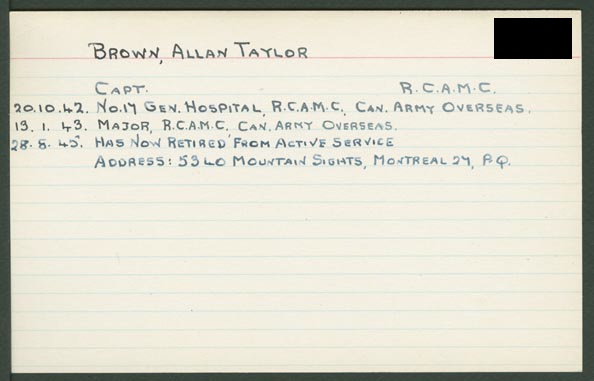 BROWN, ALLAN TAYLOR
CAPT. R.C.A.M.C.
20.10.42. NO.17 GEN. HOSPITAL, R.C.A.M.C., CAN. ARMY OVERSEAS.
13. 1. 43. MAJOR, R.C.A.M.C., CAN. ARMY OVERSEAS.
28. 8. 45. HAS NOW RETIRED FROM ACTIVE SERVICE
ADDRESS: 5340 MOUNTAIN SIGHTS, MONTREAL 29, P.Q.